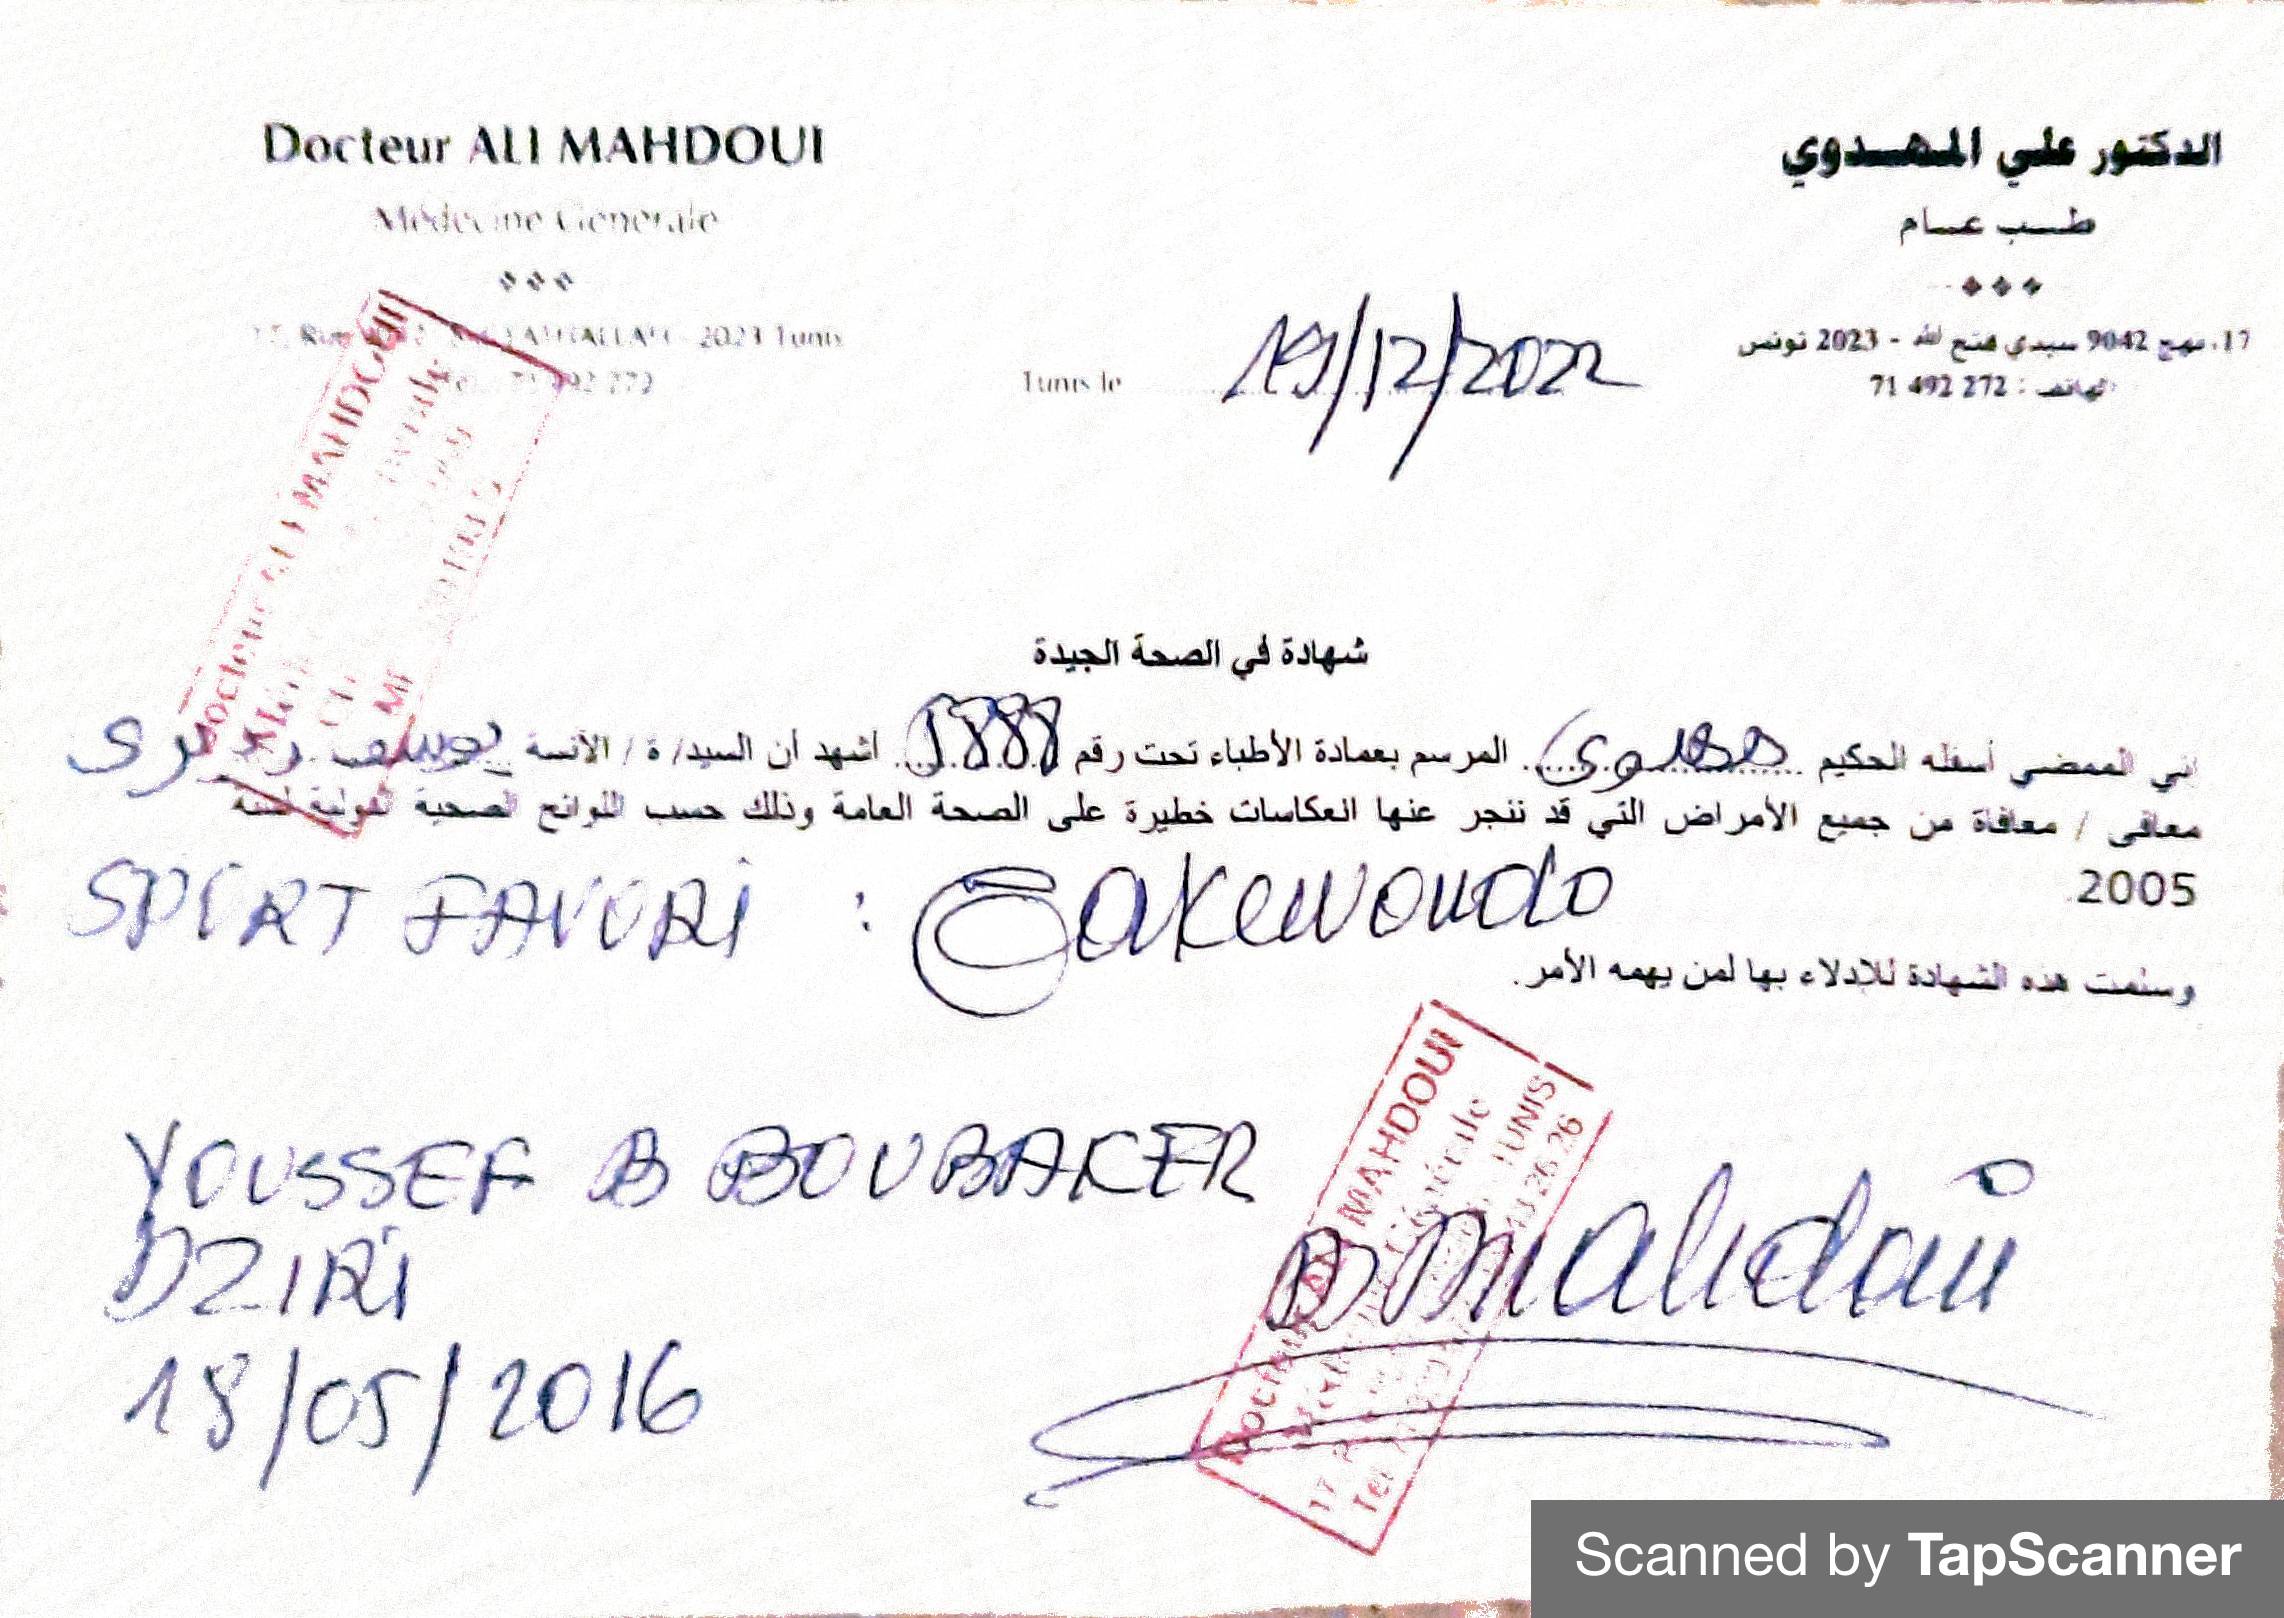 Docteur ALI MAHDOUI
Médecine Générale
2023 Tunis
71 492 272
الدكتور علي المهدوي
طب عام
17، نهج 9042 سيدي فتح الله - 2023 تونس
الهاتف : 272 492 71
Tunis le 19/12/2022
شهادة في الصحة الجيدة
إني الممضي أسفله الحكيم مهدوي المرسم بعمادة الأطباء تحت رقم أشهد أن السيد/ ة / الآنسة يوسف
معافى / معافاة من جميع الأمراض التي قد تنجر عنها انعكاسات خطيرة على الصحة العامة وذلك حسب اللوائح الصحية الدولية لسنة
2005
SPORT FAVORI : Takewondo
وسلمت هذه الشهادة للإدلاء بها لمن يهمه الأمر.
YOUSSEF B BOUBAKER
DZIRI
18/05/2016
Docteur ALI MAHDOUI
Médecine Générale
TUNIS
Docteur ALI MAHDOUI
Scanned by TapScanner